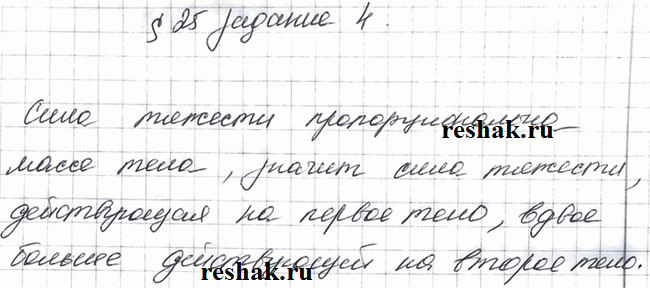 § 25 задание 4.
Сила тяжести пропорциональна
reshak.ru
массе тела, значит сила тяжести,
действующая на первое тело, вдвое
больше действующей на второе тело.
reshak.ru